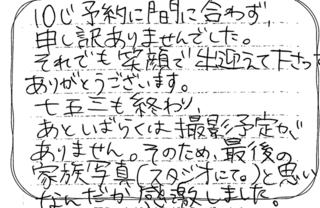 10じ予約に間に合わず,
申し訳ありませんでした。
それでも笑顔で出迎えて下さって
ありがとうございます。
七五三も終わり,
あといばらくは撮影予定が
ありません。そのため,最後の
家族写真(スタジオにて。)と思い
なんだか感激しました。